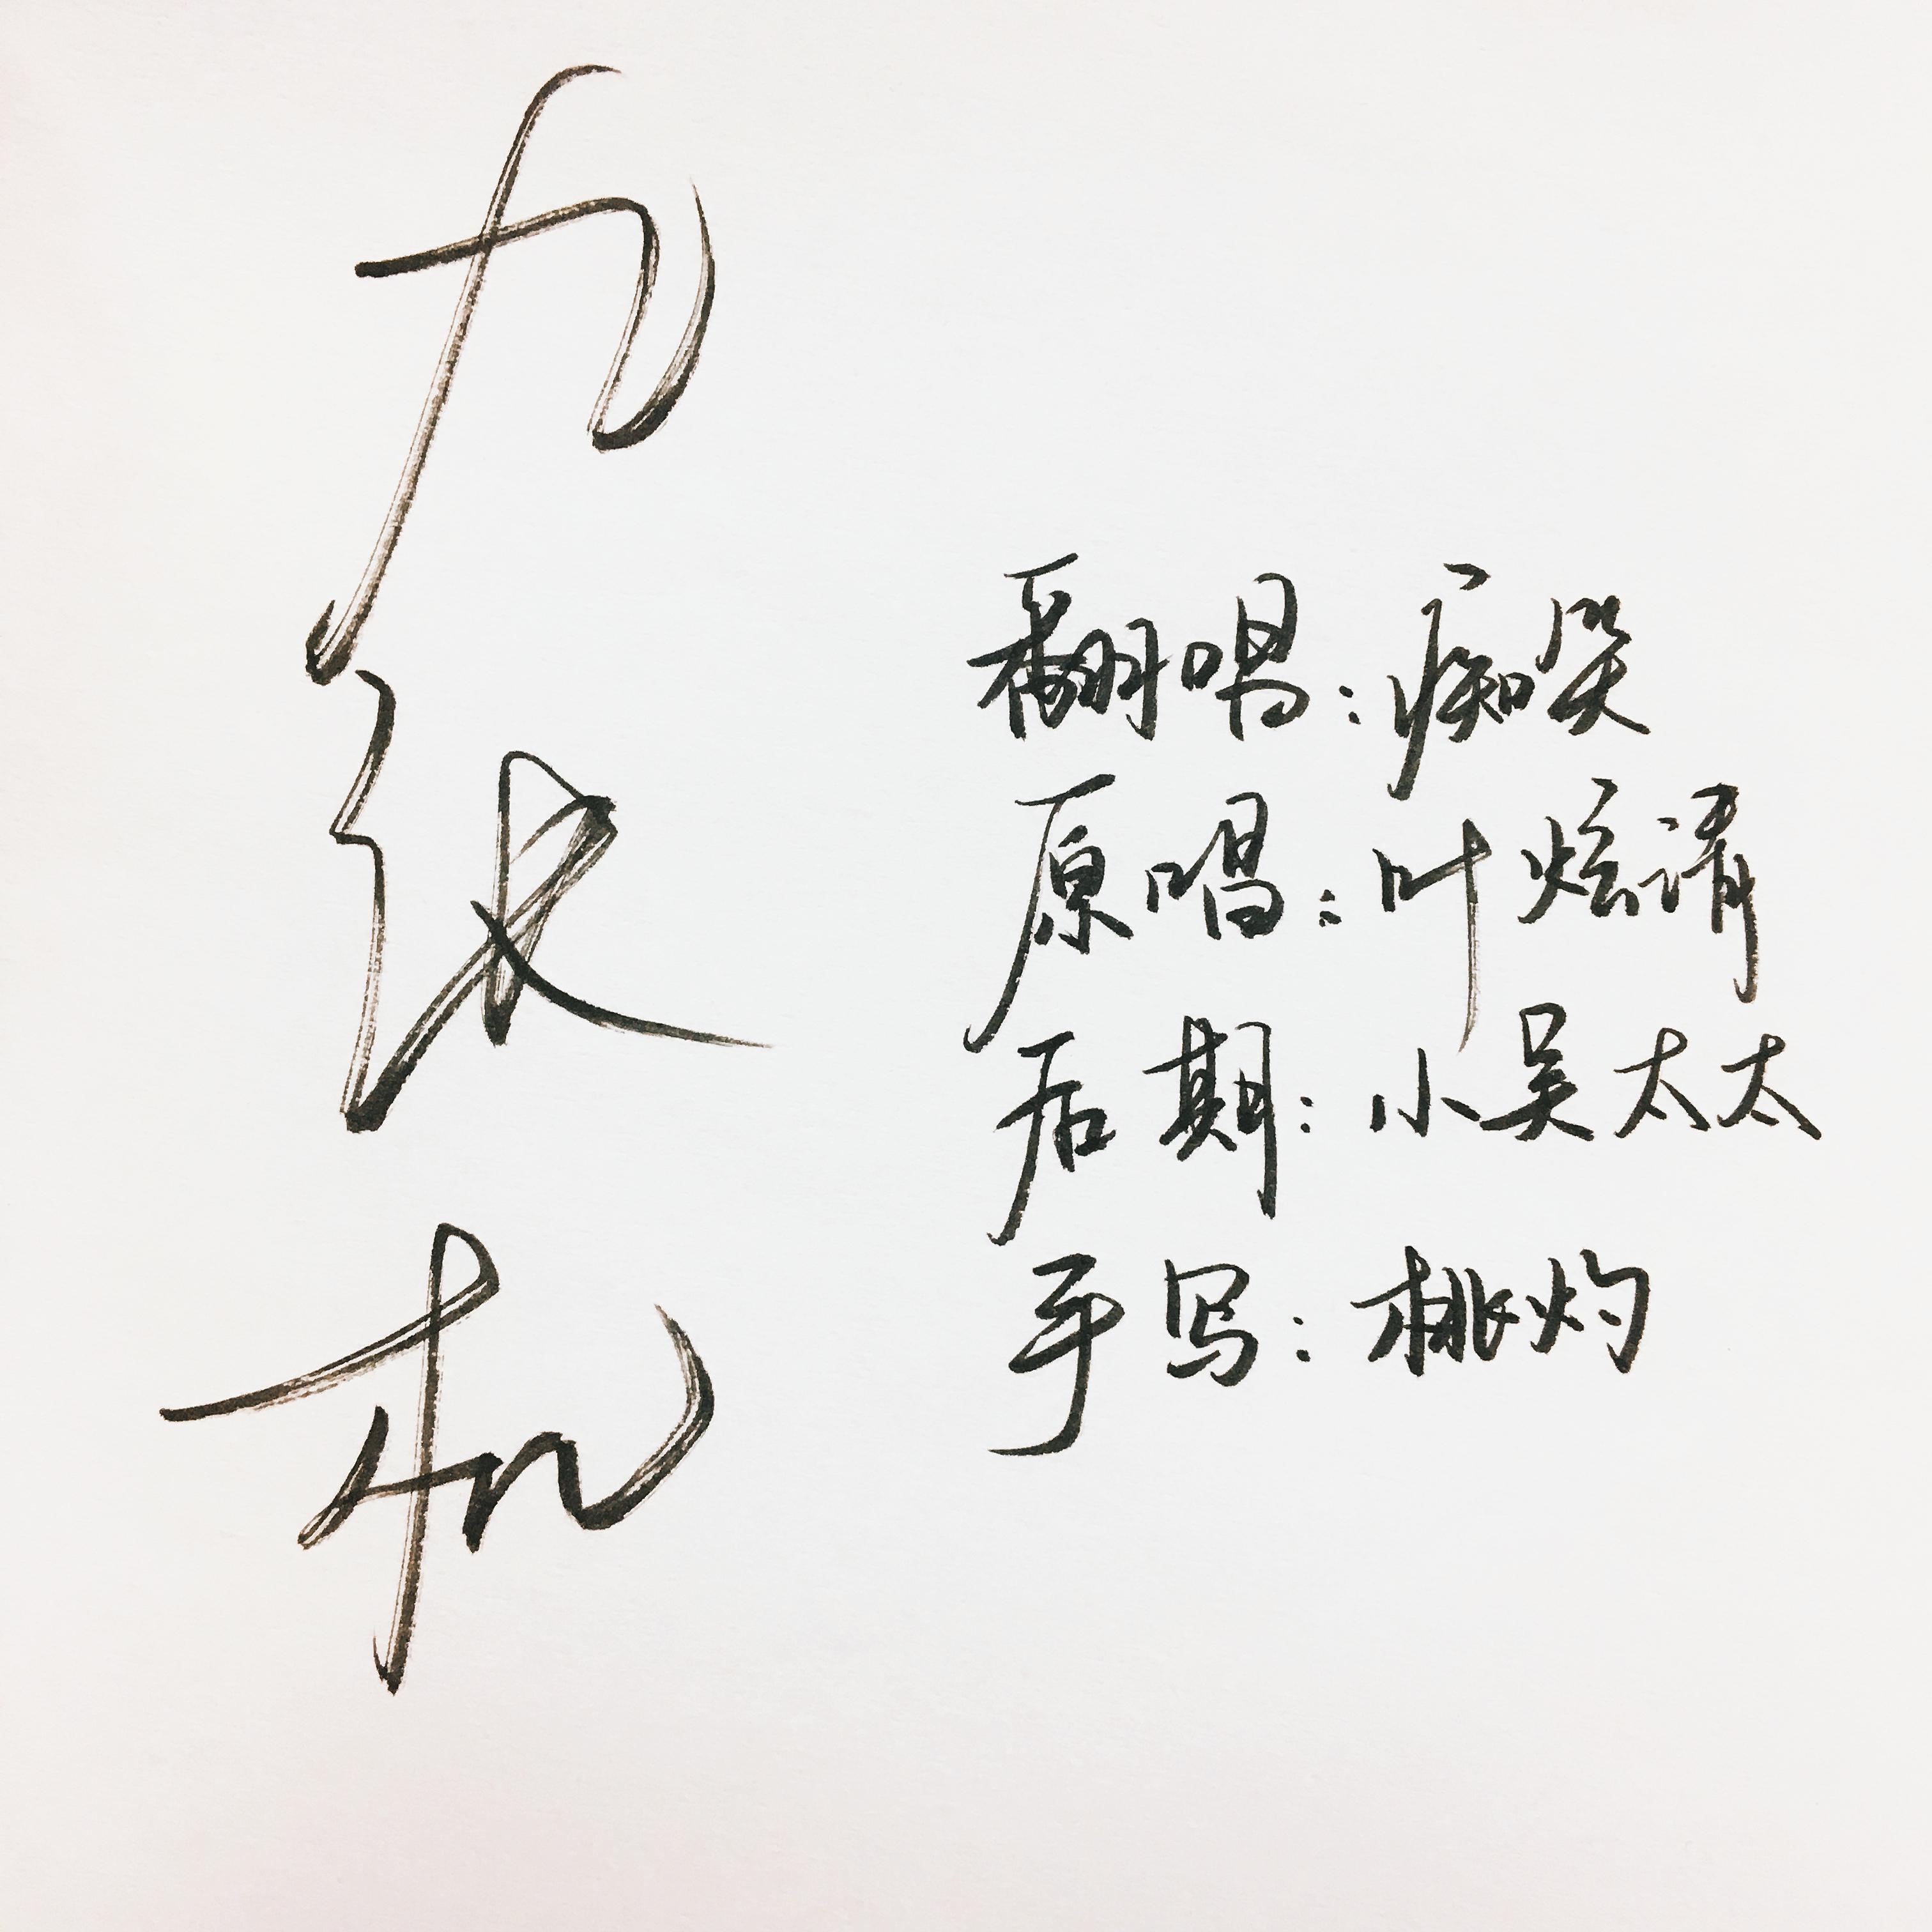 九张机
翻唱：痴笑
原唱：叶炫清
后期：小吴太太
手写：桃灼